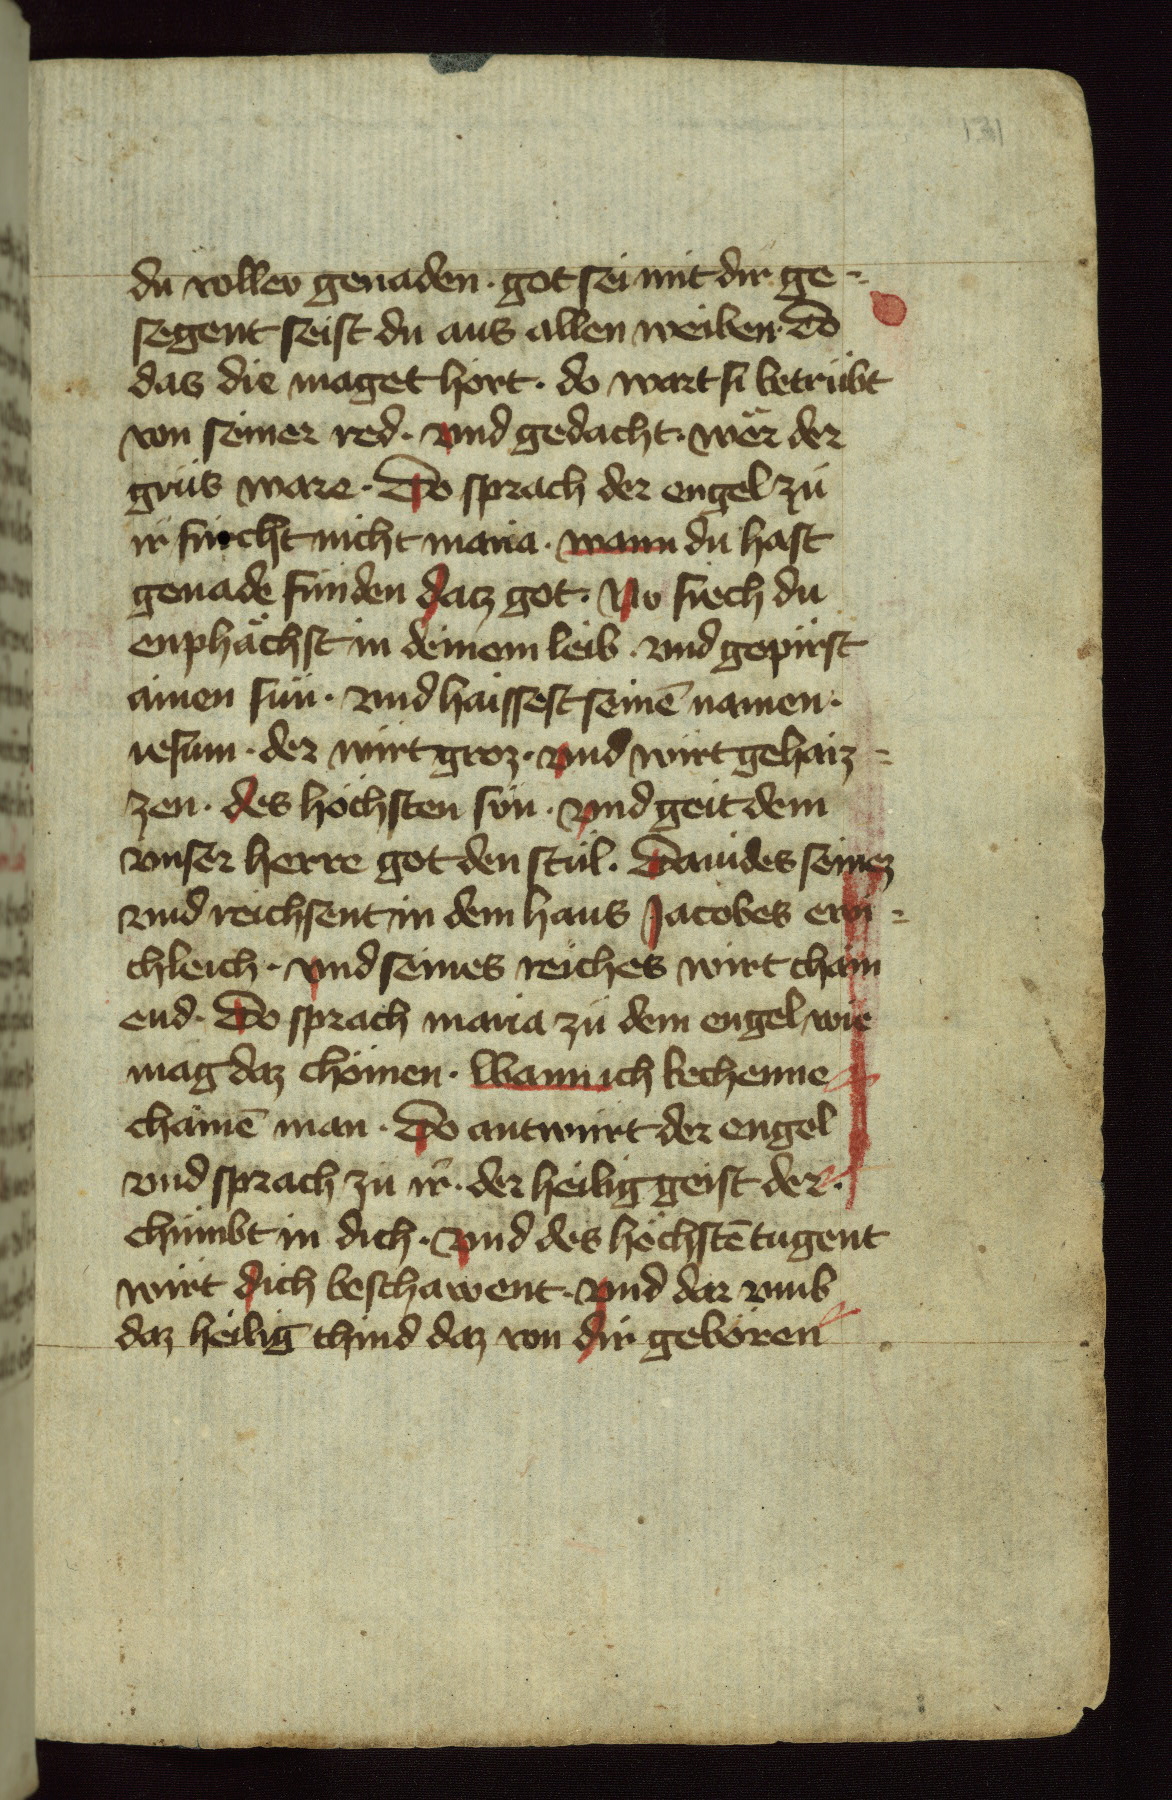 131
du voller genaden · got sei mit dir ge=
segent seist du aus allen weiben · Do
das die maget hort · do wart si betrübt
von seiner red · vnd gedacht · wër der
grüs ware · Do sprach der engel zü
ir fürcht nicht maria · wann du hast
genade funden datz got · No siech du
enphächst in deinem leib · vnd gepirst
ainen sün · vnd haissest seinē namen ·
iesum · der wirt groz · vnd wirt gehaiz=
zen · des höchsten sün · vnd geit dem
vnser herre got den stül · Dauides seinez
vnd reichsent in dem haus Jacobes ewi=
chleich · vnd seines reiches wirt chain
end · Do sprach maria zü dem engel wie
mag daz chömen · Wann ich bechenne
chainē man · Do antwurt der engel
vnd sprach zu ir · der heilig geist der ·
chümbt in dich · vnd des höchstē tugent
wirt dich beschawent · vnd dar vmb
daz heilig chind daz von dir geboren